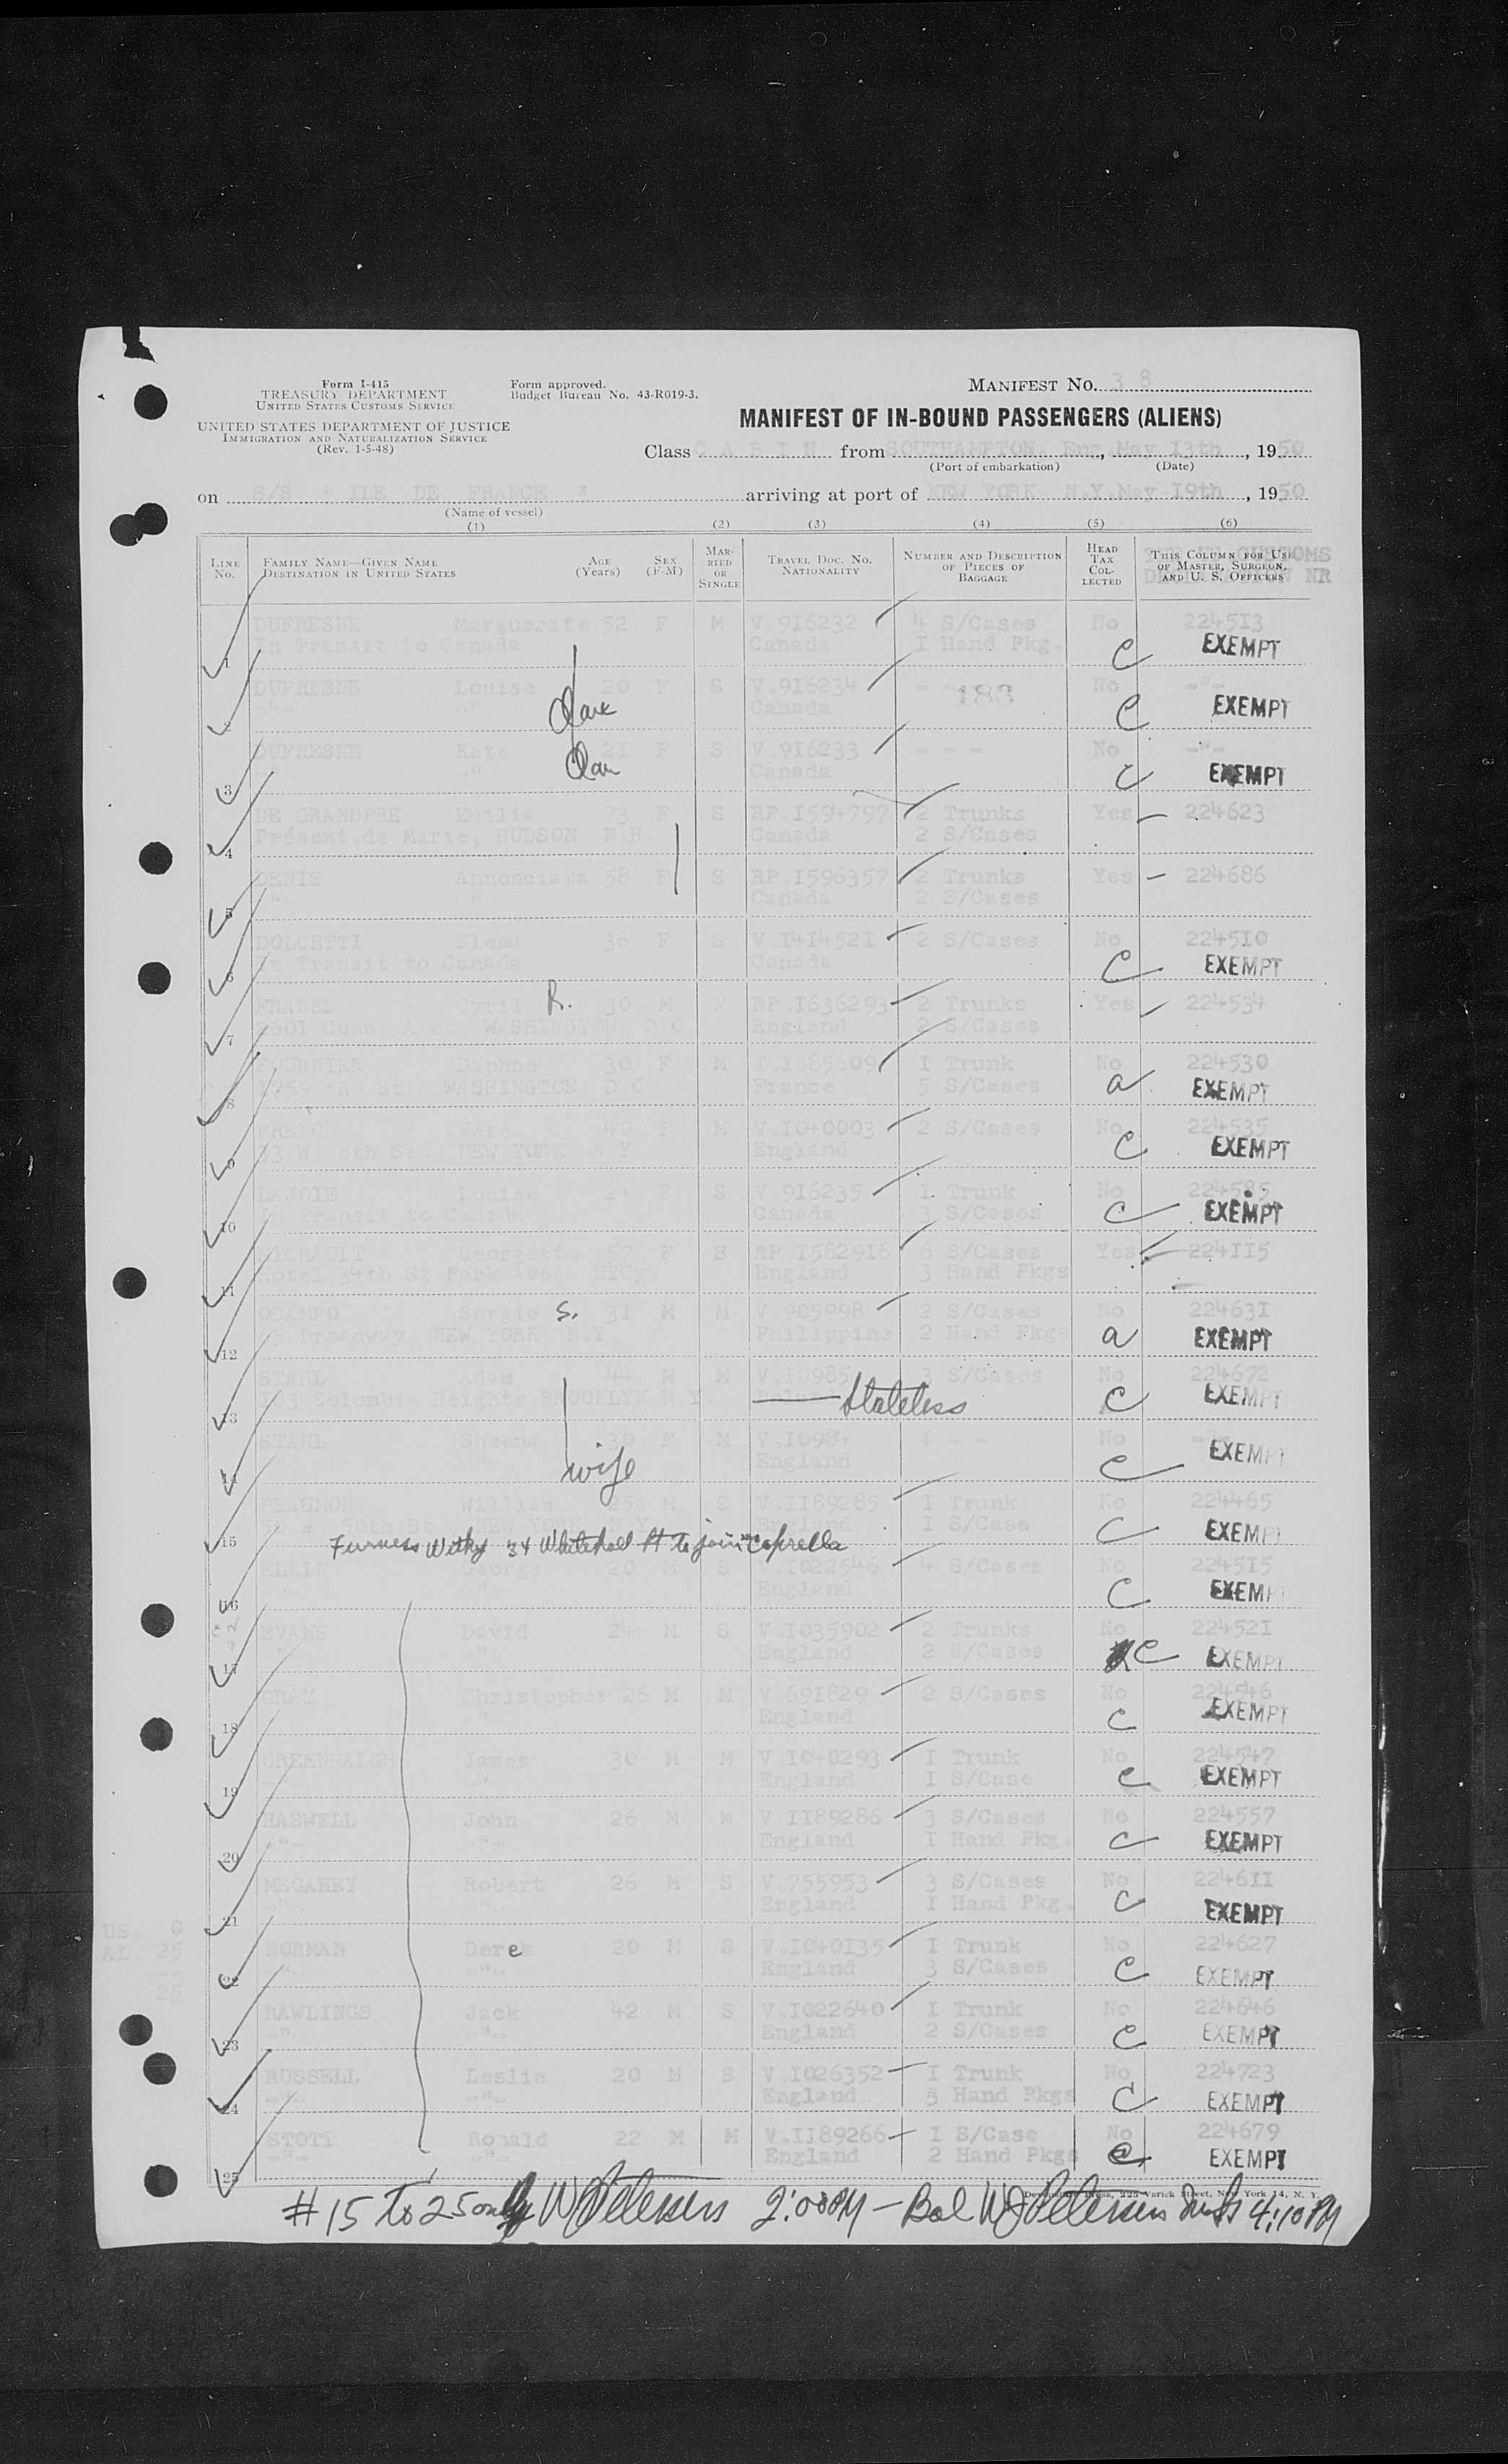 Form I-415
TREASURY DEPARTMENT
UNITED STATES CUSTOMS SERVICE
UNITED STATES DEPARTMENT OF JUSTICE
IMMIGRATION AND NATURALIZATION SERVICE
(Rev. 1-5-48)
Form approved.
Budget Bureau No. 43-R019-3.
MANIFEST No. 38
MANIFEST OF IN-BOUND PASSENGERS (ALIENS)
Class CABIN from SOUTHAMPTON. Eng, May I3th, 1950
(Port of embarkation) (Date)
on S/S " ILE DE FRANCE " arriving at port of NEW YORK N.Y. May I9th, 1950
(Name of vessel)
(1) (2) (3) (4) (5) (6)
LINE No. FAMILY NAME—GIVEN NAME DESTINATION IN UNITED STATES AGE (Years) SEX (F-M) MARRIED OR SINGLE TRAVEL DOC. NO. NATIONALITY NUMBER AND DESCRIPTION OF PIECES OF BAGGAGE HEAD TAX COLLECTED THIS COLUMN FOR USE OF MASTER, SURGEON, AND U. S. OFFICERS
CUSTOMS NR
DUFRESNE Marguerite 52 F M V.9I6232 4 S/Cases No 2245I3
1 In Transit to Canada Canada I Hand Pkg. C EXEMPT
DUFRESNE Louise 20 F S V.9I6234 - - - 183 No -"-
2 -"- -"- Canada C EXEMPT
DUFRESNE Kate 2I F S V.9I6233 - - - No -"-
3 -"- -"- Canada C EXEMPT
DE GRANDPRE Emilie 73 F S RP.I594797 2 Trunks Yes 224623
4 Présent de Marie, HUDSON N.H. Canada 2 S/Cases
DENIS Annonciara 58 F S RP.I596357 2 Trunks Yes 224686
5 -"- -"- Canada 2 S/Cases
DOLCETTI Elena 36 F S V.I4I452I 2 S/Cases No 2245I0
6 In Transit to Canada Canada C EXEMPT
FRANKS Cyril R. 30 M M RP.I636293 2 Trunks Yes 224534
7 Conn. Ave WASHINGTON D.C England 2 S/Cases
FOURNIER Daphne 30 F M I Trunk No 224530
8 R. St. WASHINGTON D.C France 5 S/Cases a EXEMPT
FRENCH Vera 40 F M V.I040003 2 S/Cases No 224535
9 W. 8th St NEW YORK N.Y England C EXEMPT
LAJOIE Louise 24 F S V.9I6235 I Trunk No 224585
10 In Transit to Canada Canada 3 S/Cases C EXEMPT
MICHAULT Georgette 57 F S RP I5829I6 6 S/Cases Yes 224II5
11 Hotel 34th St Park Ave NYCy England 3 Hand Pkgs
OCAMPO Sergio S. 3I M M V.905998 2 S/Cases No 22463I
12 Broadway NEW YORK N.Y Philippins 2 Hand Pkgs a EXEMPT
STAHL Adam 44 M M V.I0985 3 S/Cases No 224672
13 Columbia Heights BROOKLYN N.Y. Stateless C EXEMPT
STAHL Sheena 30 F M V.I0984 - - No -"-
14 wife England C EXEMPT
BEAUMONT William 25 M S V.II89285 I Trunk No 224465
50th St NEW YORK N.Y England I S/Case C EXEMPT
15 Furness Withy 34 Whitehall St To join Caprella
ELKIN George 20 M S V I022546 4 S/Cases No 2245I5
16 England C EXEMPT
EVANS David 24 M S V I035902 2 Trunks No 22452I
17 -"- England 2 S/Cases C EXEMPT
GRAY Christopher 26 M M V.69I829 2 S/Cases No
18 -"- England C EXEMPT
GREENHALGH James 30 M M V I040293 I Trunk No 224547
19 -"- England I S/Case C EXEMPT
HASWELL John 26 M M V.II89286 3 S/Cases No 224557
20 -"- -"- England I Hand Pkg. C EXEMPT
MEGAHEY Robert 26 M S V.755953 3 S/Cases No 2246II
21 -"- England I Hand Pkg. C EXEMPT
US. 0
AL. 25
25
NORMAN Derek 20 M S V.I040I35 I Trunk No 224627
22 -"- -"- England 3 S/Cases C EXEMPT
RAWLINGS Jack 42 M S V.I022640 I Trunk No 224646
23 -"- -"- England 2 S/Cases C EXEMPT
RUSSELL Leslie 20 M S V.I026352 I Trunk No 224723
24 -"- -"- England 3 Hand Pkgs C EXEMPT
STOTT Ronald 22 M M V.II89266 I S/Case No 224679
25 -"- -"- England 2 Hand Pkgs C EXEMPT
Press, 225 Varick Street, New York 14, N. Y.
#15 To 25 only W J Petersen 2:00 PM — Bal W J Petersen Insp 4:10 PM